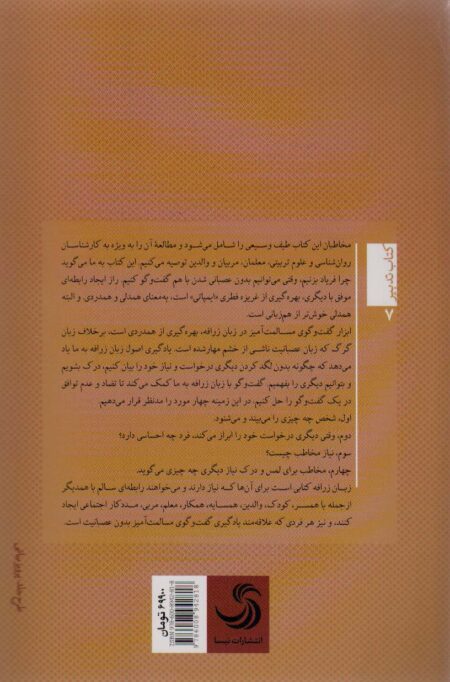 مخاطبان این کتاب طیف وسیعی را شامل می‌شود و مطالعهٔ آن را به ویژه به کارشناسان
روان‌شناسی و علوم تربیتی، معلمان، مربیان و والدین توصیه می‌کنیم. این کتاب به ما می‌گوید
چرا فریاد بزنیم، وقتی می‌توانیم بدون عصبانی شدن با هم گفت‌وگو کنیم. راز ایجاد رابطه‌ای
موفق با دیگری، بهره‌گیری از غریزه فطری «ایمپاتی» است، به‌معنای همدلی و همدردی. و البته
همدلی خوش‌تر از هم‌زبانی است.
ابزار گفت‌وگوی مسالمت‌آمیز در زبان زرافه، بهره‌گیری از همدردی است، برخلاف زبان
گرگ که زبان عصبانیت ناشی از خشم مهارشده است. یادگیری اصول زبان زرافه به ما یاد
می‌دهد که چگونه بدون لگد کردن دیگری درخواست و نیاز خود را بیان کنیم، درک بشویم
و بتوانیم دیگری را بفهمیم. گفت‌وگو با زبان زرافه به ما کمک می‌کند تا تضاد و عدم توافق
در یک گفت‌وگو را حل کنیم. در این زمینه چهار مورد را مدنظر قرار می‌دهیم.
اول، شخص چه چیزی را می‌بیند و می‌شنود.
دوم، وقتی دیگری درخواست خود را ابراز می‌کند، فرد چه احساسی دارد؟
سوم، نیاز مخاطب چیست؟
چهارم، مخاطب برای لمس و درک نیاز دیگری چه چیزی می‌گوید.
زبان زرافه کتابی است برای آن‌ها که نیاز دارند و می‌خواهند رابطه‌ای سالم با همدیگر
ازجمله با همسر، کودک، والدین، همسایه، همکار، معلم، مربی، مددکار اجتماعی ایجاد
کنند، و نیز هر فردی که علاقه‌مند یادگیری گفت‌وگوی مسالمت‌آمیز بدون عصبانیت است.
کتاب تدبیر
۷
۶۹۹۰۰ تومان
انتشارات نیسا